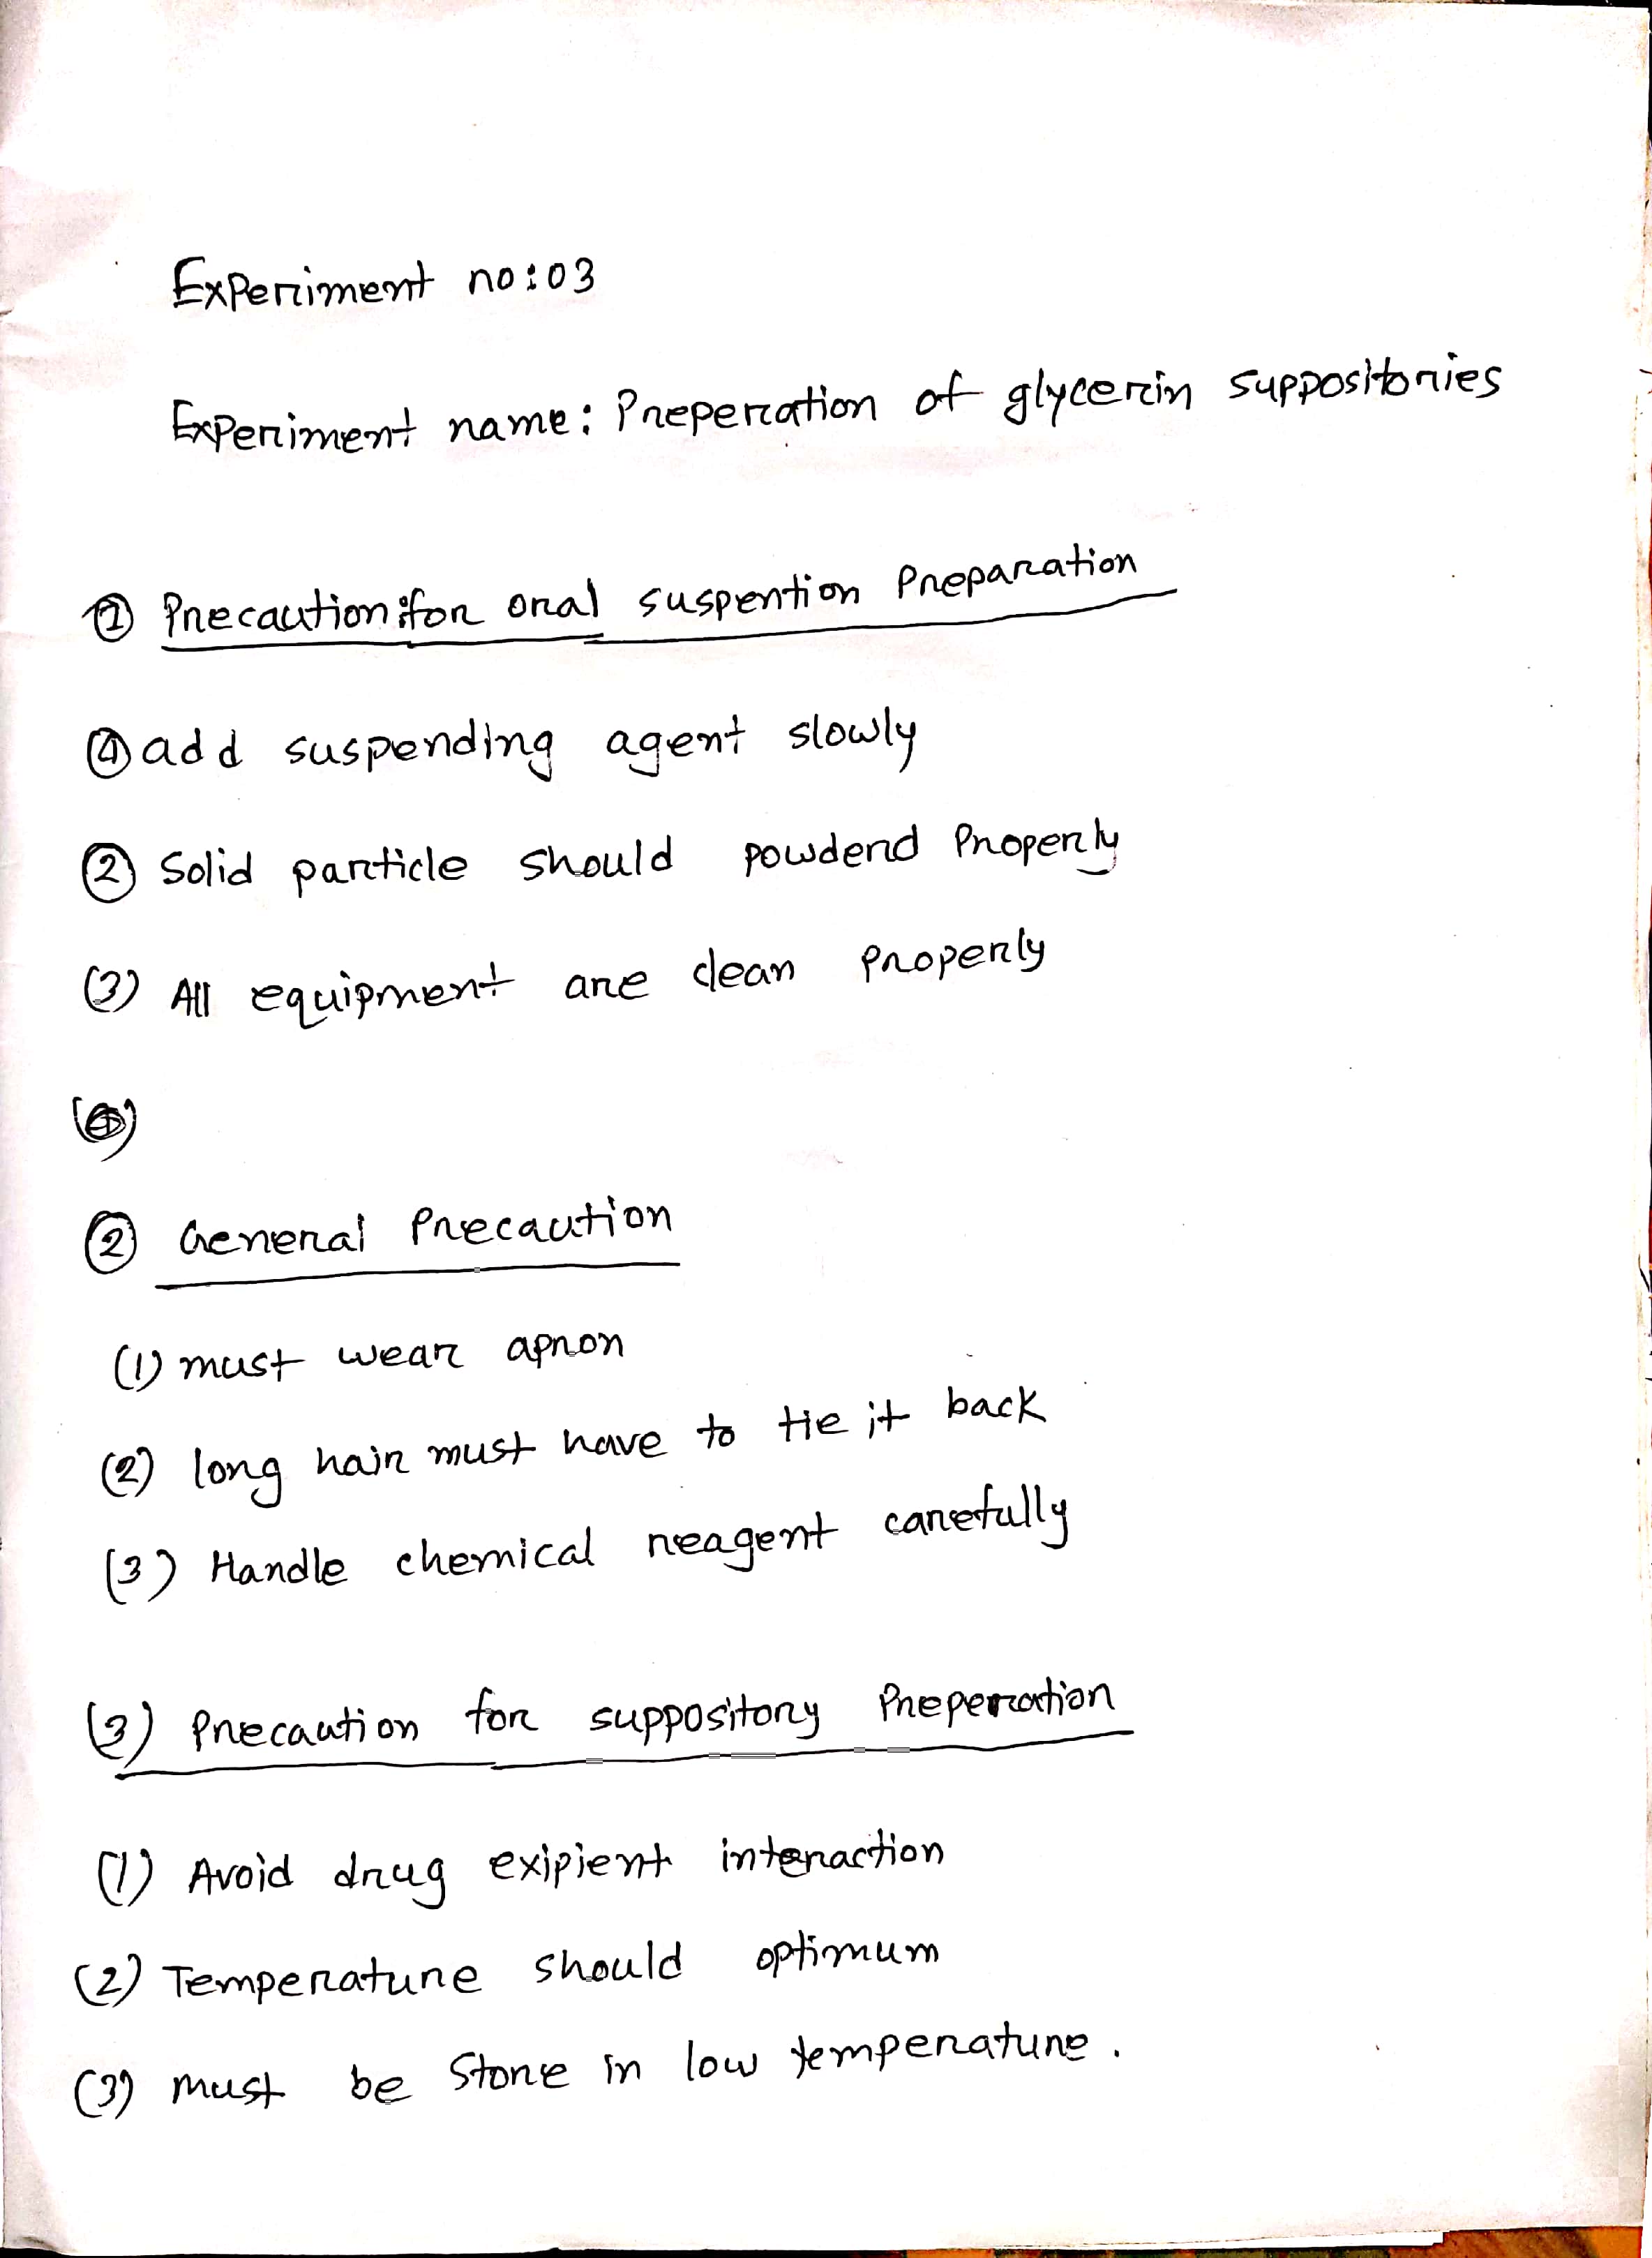 Experiment no:03
Experiment name: Preperation of glycerin suppositories
① Precaution:for oral suspention Preparation
① add suspending agent slowly
② Solid particle should powderd Properly
(3) All equipment are clean properly
② General Precaution
(1) must wear apron
(2) long hair must have to tie it back
(3) Handle chemical reagent carefully
(3) Precaution for suppository Preperation
(1) Avoid drug exipient interaction
(2) Temperature should optimum
(3) must be Store in low temperature.